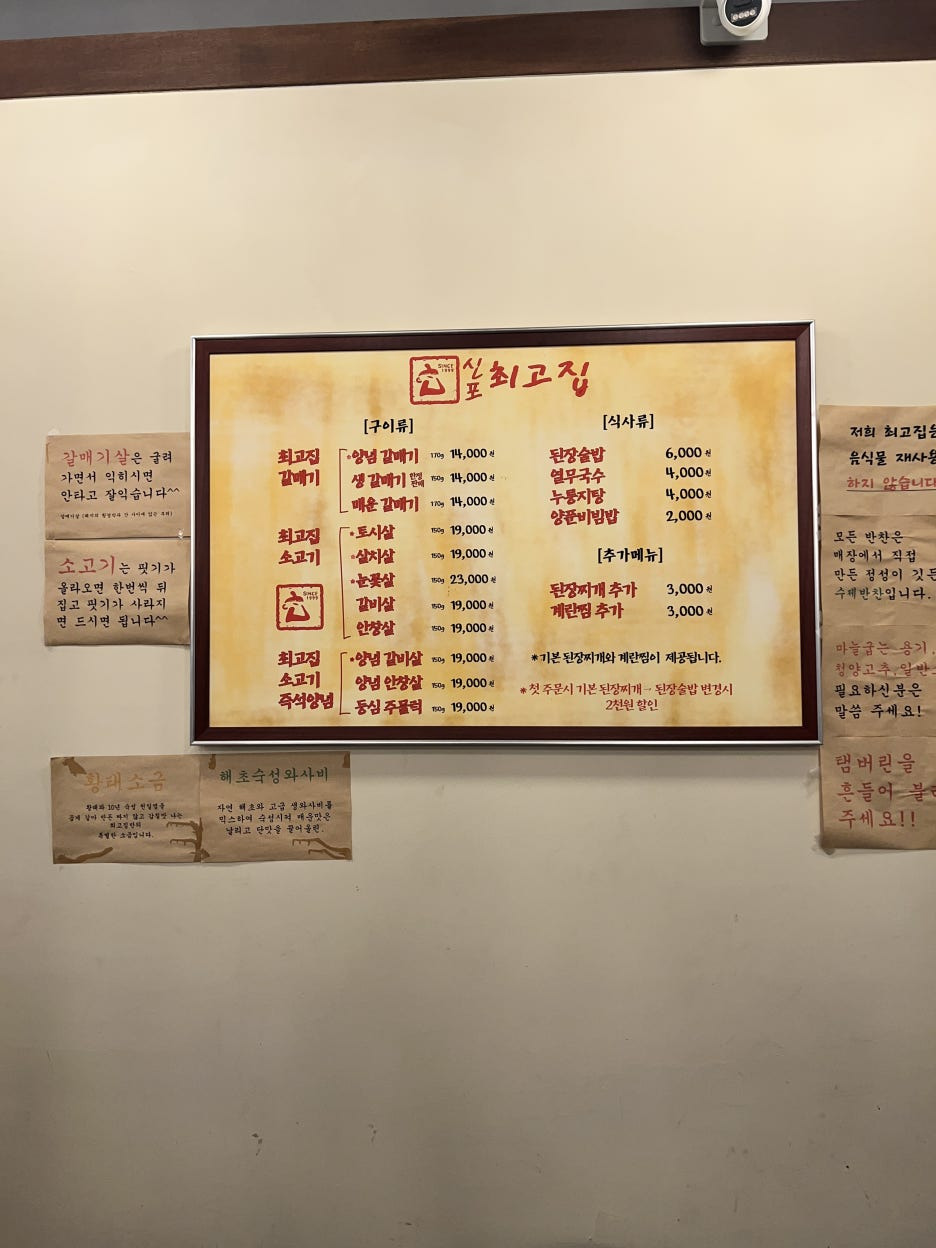 SINCE 1999
신포 최고집
[구이류]
최고집 갈매기
양념 갈매기 170g 14,000원
생 갈매기 한정판매 150g 14,000원
매운 갈매기 170g 14,000원
최고집 소고기
토시살 150g 19,000원
살치살 150g 19,000원
눈꽃살 150g 23,000원
갈비살 150g 19,000원
안창살 150g 19,000원
SINCE 1999
최고집 소고기 즉석양념
양념 갈비살 150g 19,000원
양념 안창살 150g 19,000원
등심 주물럭 150g 19,000원
[식사류]
된장술밥 6,000원
열무국수 4,000원
누룽지탕 4,000원
양푼비빔밥 2,000원
[추가메뉴]
된장찌개 추가 3,000원
계란찜 추가 3,000원
*기본 된장찌개와 계란찜이 제공됩니다.
*첫 주문시 기본 된장찌개→된장술밥 변경시
2천원 할인
갈매기살은 굴려
가면서 익히시면
안타고 잘익습니다^^
소고기는 핏기가
올라오면 한번씩 뒤
집고 핏기가 사라지
면 드시면 됩니다^^
황태소금
황태와 10년 숙성 천일염을
곱게 갈아 만든 짜지 않고 감칠맛 나는
최고집만의
특별한 소금입니다.
해초숙성와사비
자연 해초와 고급 생와사비를
믹스하여 숙성시켜 매운맛은
날리고 단맛을 끌어올린.
저희 최고집은
음식물 재사용
하지 않습니다
모든 반찬은
매장에서 직접
만든 정성이 깃든
수제반찬입니다.
마늘굽는 용기,
청양고추,일반
필요하신분은
말씀 주세요!
탬버린을
흔들어 불러
주세요!!